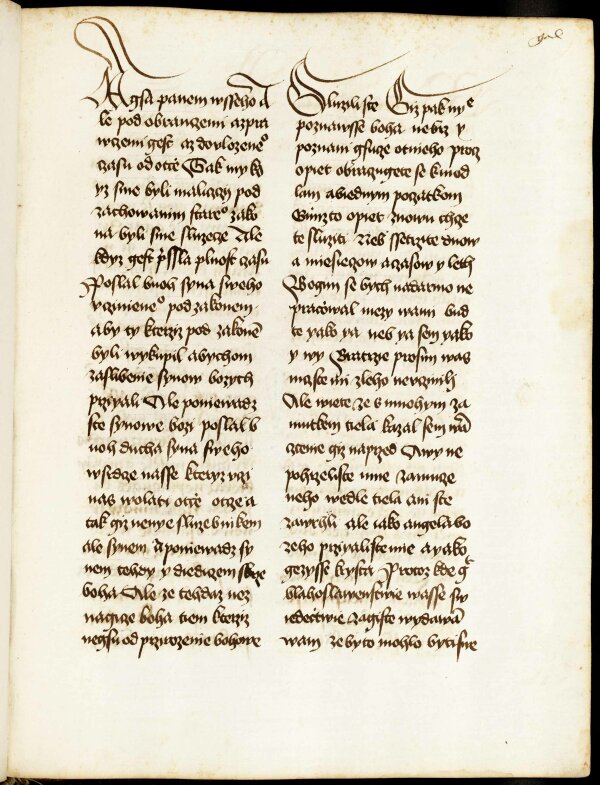 A gsa panem wsseho A
le pod obranczemi azpra
wczemi gest az dovlozeneo
czasu od otcze Tak my ko
yz sme byli maliczcy pod
zachowanim stareo zako
na byli sme sluzecze Ale
kdyz gest prssla plnost czasu
Poslal buoh syna sweho
vczinieneo pod zakonem
aby ty kterziz pod zakone
byli wykupil abychom
zaslibenie synow bozych
przyiali Ale poniewadz
ste synowe bozi poslal b
uoh ducha syna sweho
w srdcze nasse kteryz vczi
nas wolati otcze otcze a
tak giz nenye sluzebnikem
ale synem A poniewadz sy
nem tehdy y diediczem skrze
boha Ale ze tehdaz nez
nagicze boha tiem kterziz
negsu od przirozenie bohowe
Sluzili ste Giz pak nye
poznawsse boha nebrz y
poznani gsucze otnieho procz
opiet obraczugete se k mod
lam a biednym poczatkom
Gimzto opiet znowu chcze
te sluziti Neb ssetrzite dnow
a miesieczow a czasow y leth
Bogim se bych nadarmo ne
praczowal mezy wami Bud
te yako ya neb ya sem yako
y wy Bratrzie prosim was
nicz ste mi zleho nevcznili
Ale wiete ze s mnohym za
mutkem tiela kazal sem wa
cztenie giz naprzed A wy ne
pohrzeli ste mne zamucze
neho wedle tiela ani ste
zawrhli ale iako angela bo
zeho przyiali ste mie a yako
gezysse krysta Protoz kde g
blahoslawenstwie wasse Sw
iedectwie zagiste wydawa
wam ze byto mohlo byti sne